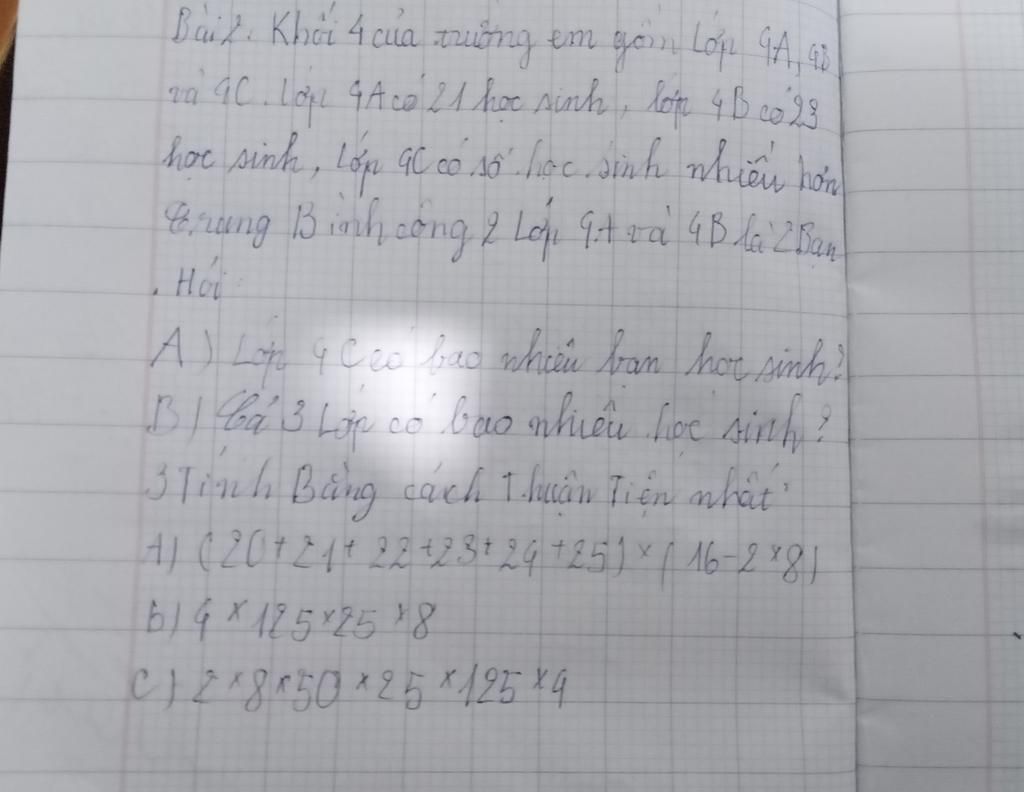 Bài 2. Khối 4 của trường em gồm Lớp 4A, 4B
và 4C. Lớp 4A có 21 học sinh, lớp 4B có 23
học sinh, Lớp 4C có số học sinh nhiều hơn
trung Bình cộng 2 Lớp 4A và 4B là 2 Bạn
. Hỏi
A) Lớp 4C có bao nhiêu bạn học sinh?
B) Cả 3 Lớp có bao nhiêu học sinh?
3 Tính Bằng cách Thuận Tiện nhất
A) (20 + 21 + 22 + 23 + 24 + 25) × (16 - 2 × 8)
b) 4 × 125 × 25 × 8
c) 2 × 8 × 50 × 25 × 125 × 4